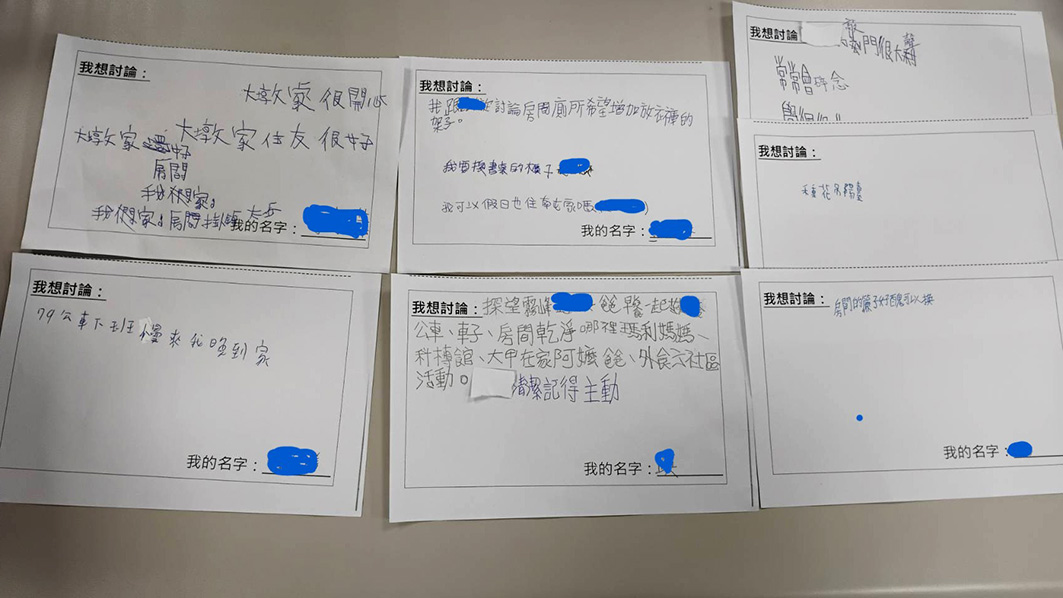 我想討論：
大墩家 很開心
大墩家 大墩家住友很好
房間
我們家。
我們家。房間
我的名字：
我想討論：
我跟 討論房間廁所希望增加放衣褲的
架子。
我要換書桌的櫃子
我可以假日也住
我的名字：
我想討論：
門很大聲
常常會碎念
我想討論：
我想討論：
79公車下班 慢來我晚到家
我的名字：
我想討論：探望霧峰 爸 一起
公車、車子、房間乾淨哪裡瑪利媽媽、
科博館、大甲在家阿嬤爸、外食六社區
活動。 清潔記得主動
我的名字：
我想討論：房間的簾子好醜可以換
我的名字：